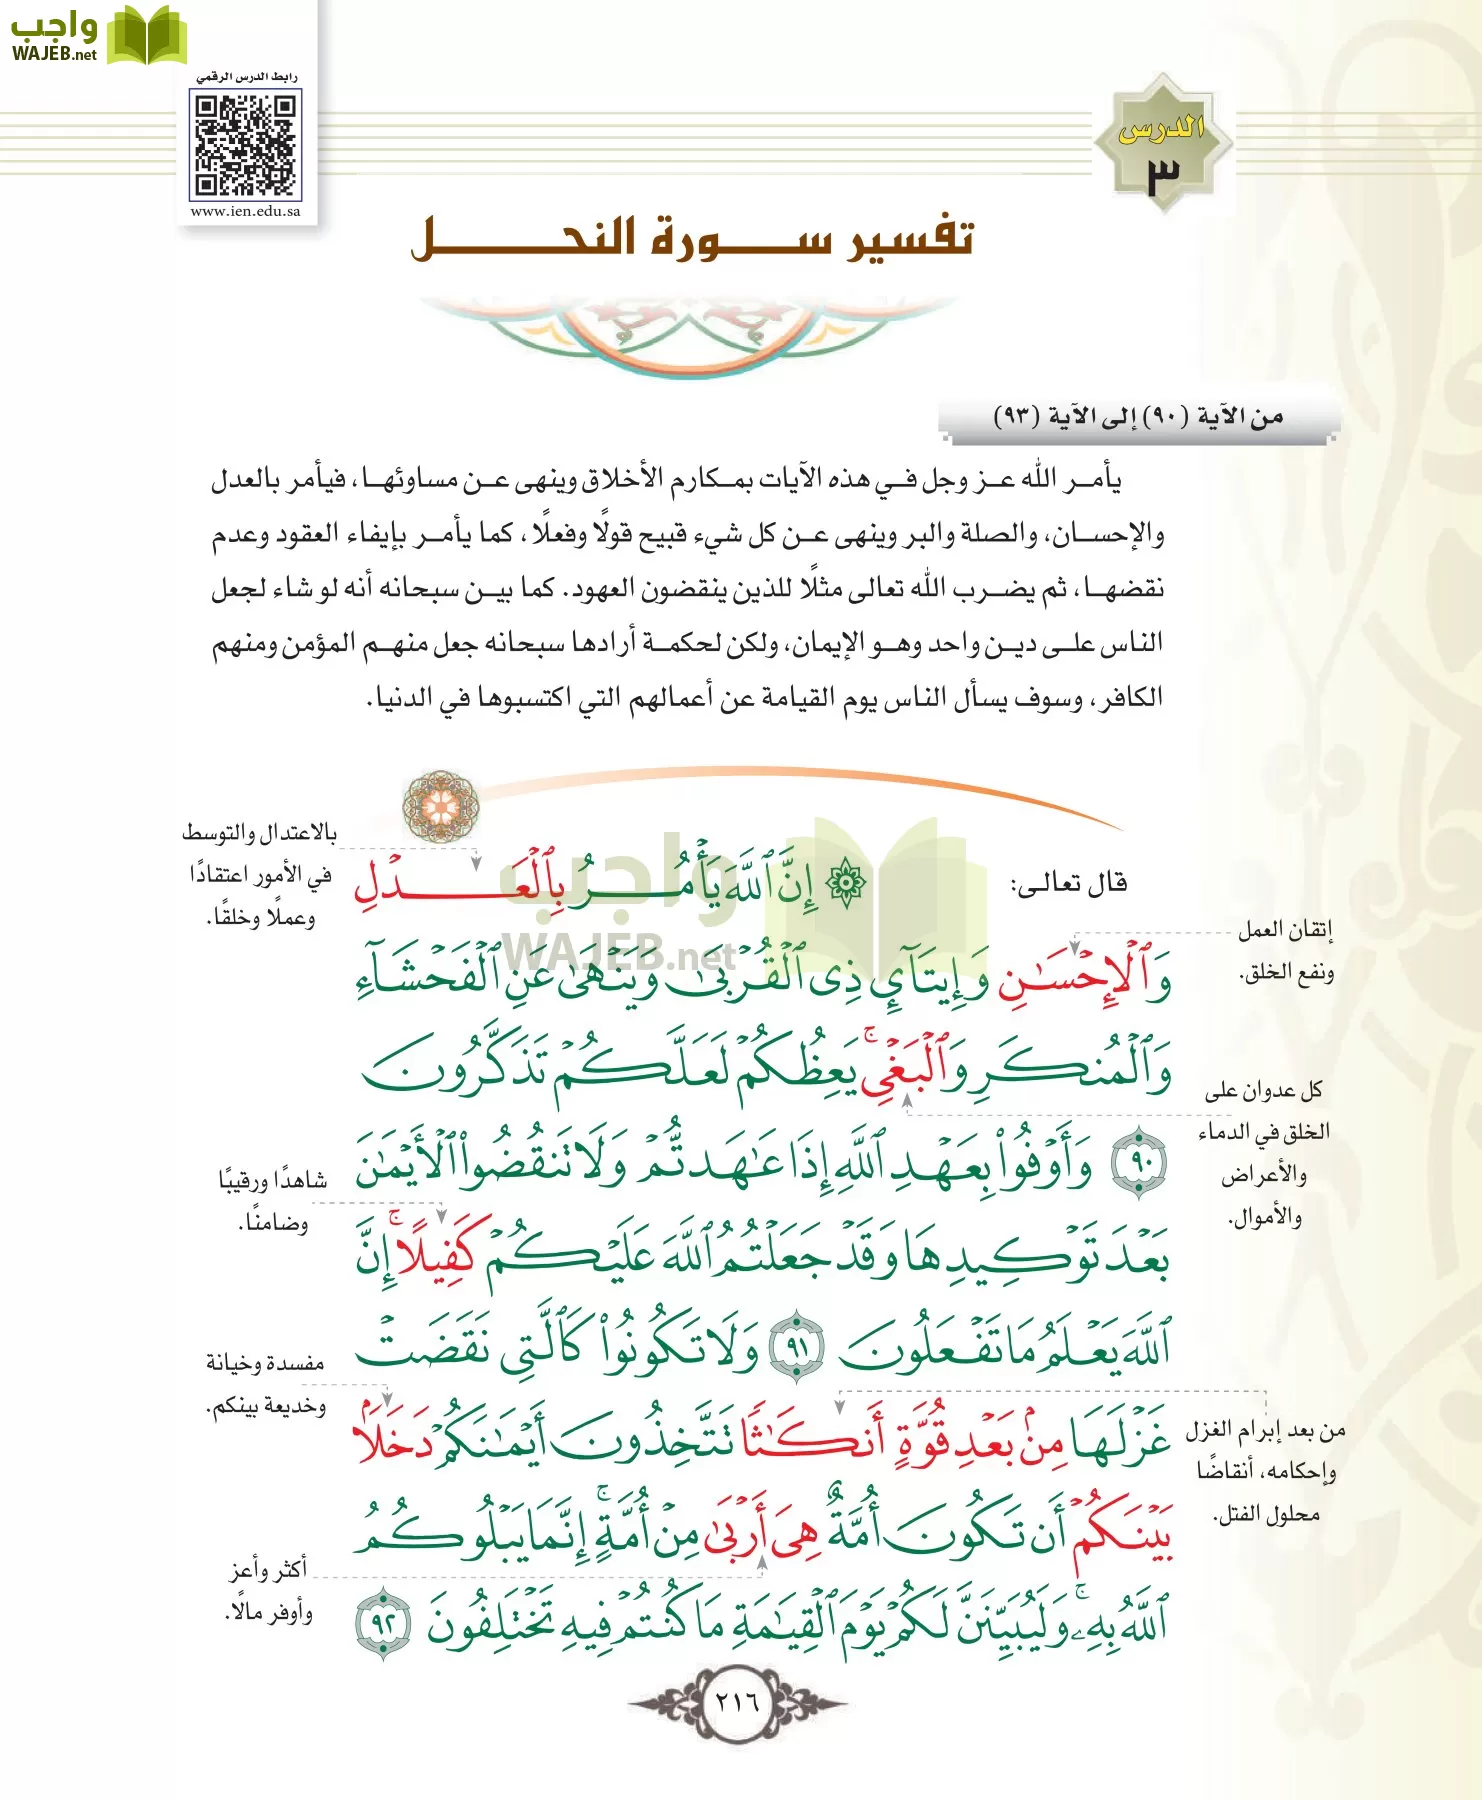 واجب
WAJEB.net
رابط الدرس الرقمي
www.ien.edu.sa
الدرس
٣
تفسير سورة النحل
من الآية (٩٠) إلى الآية (٩٣)
يأمر الله عز وجل في هذه الآيات بمكارم الأخلاق وينهى عن مساوئها، فيأمر بالعدل
والإحسان، والصلة والبر وينهى عن كل شيء قبيح قولًا وفعلًا، كما يأمر بإيفاء العقود وعدم
نقضها، ثم يضرب الله تعالى مثلًا للذين ينقضون العهود. كما بين سبحانه أنه لو شاء لجعل
الناس على دين واحد وهو الإيمان، ولكن لحكمة أرادها سبحانه جعل منهم المؤمن ومنهم
الكافر، وسوف يسأل الناس يوم القيامة عن أعمالهم التي اكتسبوها في الدنيا.
قال تعالى: ۞ إِنَّ ٱللَّهَ يَأْمُرُ بِٱلْعَدْلِ
وَٱلْإِحْسَـٰنِ وَإِيتَآئِ ذِى ٱلْقُرْبَىٰ وَيَنْهَىٰ عَنِ ٱلْفَحْشَآءِ
وَٱلْمُنكَرِ وَٱلْبَغْىِ ۚ يَعِظُكُمْ لَعَلَّكُمْ تَذَكَّرُونَ
٩٠ وَأَوْفُوا۟ بِعَهْدِ ٱللَّهِ إِذَا عَـٰهَدتُّمْ وَلَا تَنقُضُوا۟ ٱلْأَيْمَـٰنَ
بَعْدَ تَوْكِيدِهَا وَقَدْ جَعَلْتُمُ ٱللَّهَ عَلَيْكُمْ كَفِيلًا ۚ إِنَّ
ٱللَّهَ يَعْلَمُ مَا تَفْعَلُونَ ٩١ وَلَا تَكُونُوا۟ كَٱلَّتِى نَقَضَتْ
غَزْلَهَا مِنۢ بَعْدِ قُوَّةٍ أَنكَـٰثًا تَتَّخِذُونَ أَيْمَـٰنَكُمْ دَخَلًۢا
بَيْنَكُمْ أَن تَكُونَ أُمَّةٌ هِىَ أَرْبَىٰ مِنْ أُمَّةٍ ۚ إِنَّمَا يَبْلُوكُمُ
ٱللَّهُ بِهِۦ ۚ وَلَيُبَيِّنَنَّ لَكُمْ يَوْمَ ٱلْقِيَـٰمَةِ مَا كُنتُمْ فِيهِ تَخْتَلِفُونَ ٩٢
بالاعتدال والتوسط
في الأمور اعتقادًا
وعملًا وخلقًا.
إتقان العمل
ونفع الخلق.
كل عدوان على
الخلق في الدماء
والأعراض
والأموال.
شاهدًا ورقيبًا
وضامنًا.
مفسدة وخيانة
وخديعة بينكم.
من بعد إبرام الغزل
وإحكامه، أنقاضًا
محلول الفتل.
أكثر وأعز
وأوفر مالًا.
واجب
WAJEB.net
٢١٦